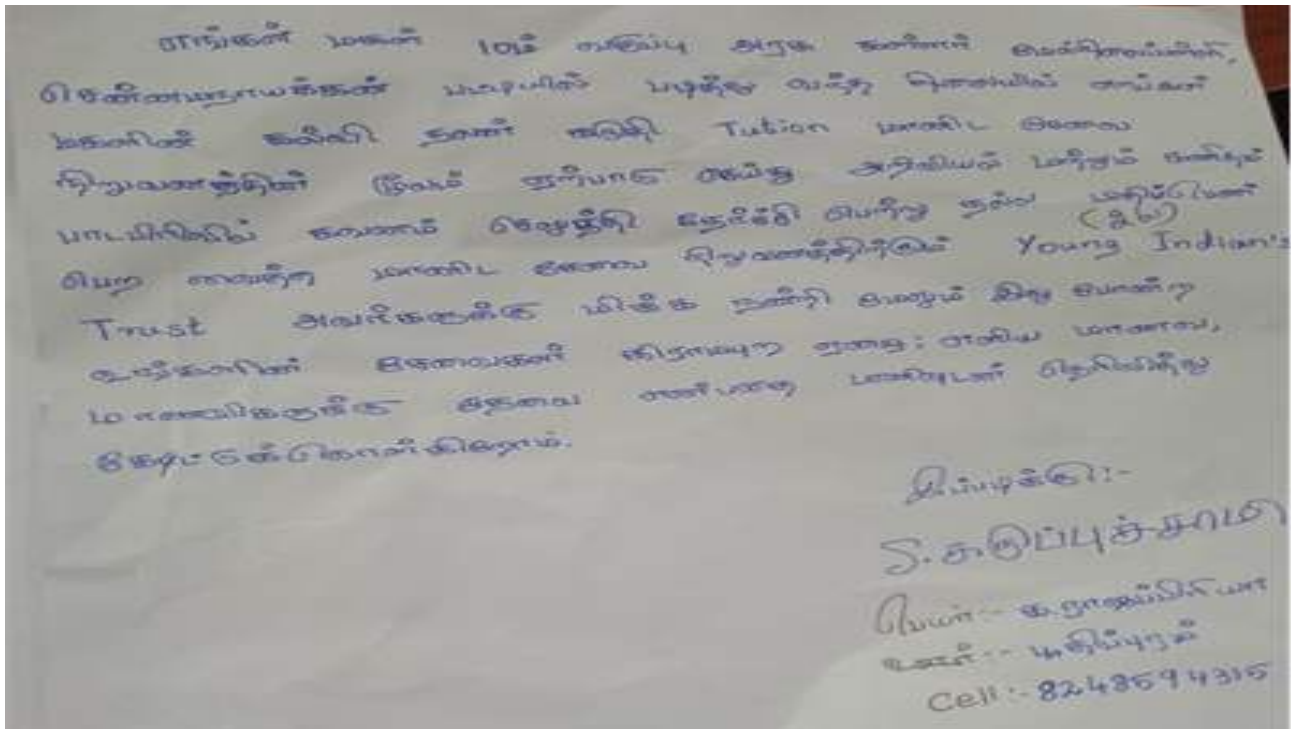 எங்கள் மகள் 10ம் வகுப்பு அரசு கள்ளர் மேல்நிலைப்பள்ளி,
சென்னமநாயக்கன் பட்டியில் படித்து வந்த நிலையில் எங்கள்
மகளின் கல்வி நலன் கருதி Tution மானிட சேவை
நிறுவனத்தின் மூலம் ஏற்பாடு செய்து அறிவியல் மற்றும் கணிதம்
பாடபிரிவில் கவனம் செலுத்தி தேர்ச்சி பெற்று நல்ல மதிப்பெண்
பெற வைத்த மானிட சேவை நிறுவனத்திற்கும் (அ) Young Indian's
Trust அவர்களுக்கு மிக்க நன்றி மேலும் இது போன்ற
உங்களின் சேவைகள் கிராமபுற ஏழை: எளிய மாணவ,
மாணவிகளுக்கு தேவை என்பதை பணிவுடன் தெரிவித்து
கேட்டுக்கொள்கிறோம்.
இப்படிக்கு:-
S. கருப்புச்சாமி
பெயர்:- க.
ஊர்:-
Cell:- 8248594315